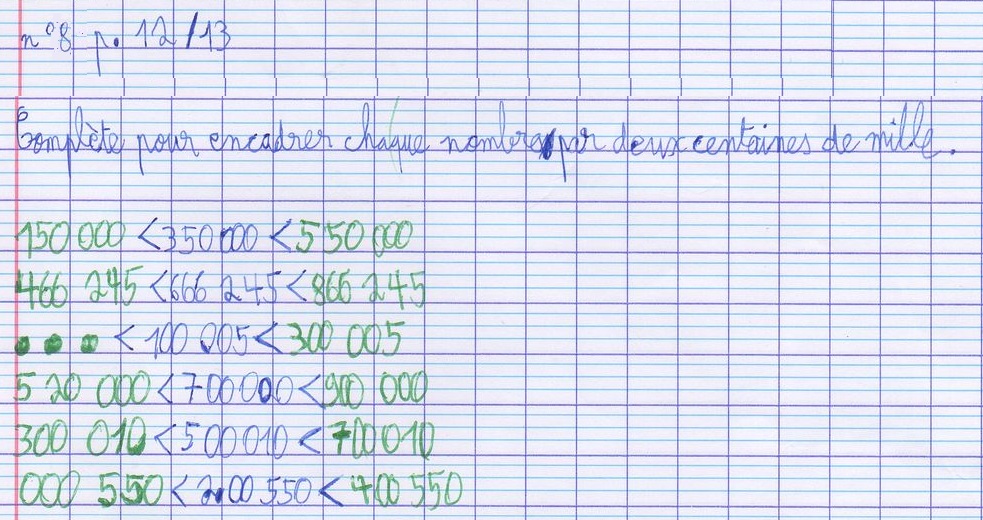 n° 8 p. 12/13
Complète pour encadrer chaque nombre par deux centaines de mille.
150 000 < 350 000 < 550 000
466 245 < 666 245 < 866 245
... < 100 005 < 300 005
520 000 < 700 000 < 900 000
300 010 < 500 010 < 700 010
000 550 < 200 550 < 400 550